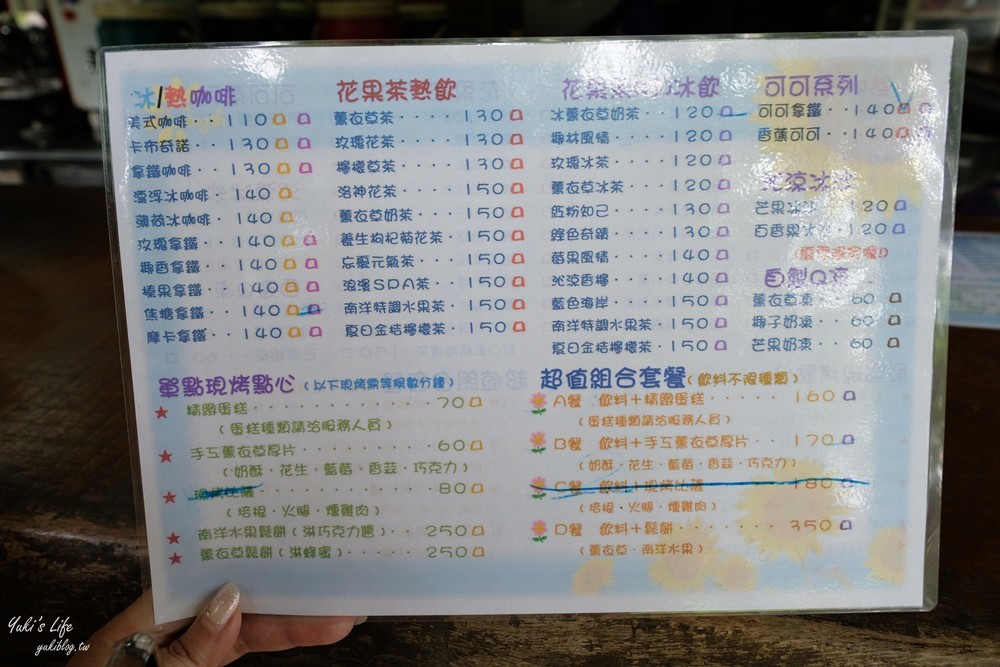 冰/熱咖啡
美式咖啡‥110
卡布奇諾‥130
拿鐵咖啡‥130
漂浮冰咖啡‧140
薄荷冰咖啡‧140
玫瑰拿鐵‥140
椰香拿鐵‥140
榛果拿鐵‥140
焦糖拿鐵‥140
摩卡拿鐵‥140
花果茶熱飲
薰衣草茶‥‥130
玫瑰花茶‥‥130
檸檬草茶‥‥130
洛神花茶‥‥150
薰衣草奶茶‥‥150
養生枸杞菊花茶‥150
忘憂元氣茶‥‥150
浪漫SDA茶‥‥150
南洋特調水果茶‥150
夏日金桔檸檬茶‧150
花果茶 冰飲
冰薰衣草奶茶‥120
椰林風情‥‥120
玫瑰冰茶‥‥120
薰衣草冰茶‥‥120
紅粉知己‥‥130
綠色奇蹟‥‥130
莓果風情‥‥140
沁涼香檸‥‥140
藍色海岸‥‥150
南洋特調水果茶‧150
夏日金桔檸檬茶‧150
可可系列
可可拿鐵‥140
香蕉可可‥140
沁涼冰沙
芒果冰沙‥120
百香果冰沙‧120
自製Q凍
薰衣草凍‥60
椰子奶凍‥60
芒果奶凍‥60
單點現烤點心(以下現烤需等候數分鐘)
★ 精緻蛋糕‥‥‥‥70
(蛋糕種類請洽服務人員)
★ 手工薰衣草厚片‥‥60
(奶酥‧花生‧藍莓‧香蒜‧巧克力)
★ 現烤比薩‥‥‥‥80
(培根‧火腿‧燻雞肉)
★ 南洋水果鬆餅(淋巧克力醬)‥250
★ 薰衣草鬆餅(淋蜂蜜)‥‥250
超值組合套餐(飲料不限種類)
A餐 飲料+精緻蛋糕‥‥160
(蛋糕種類請洽服務人員)
B餐 飲料+手工薰衣草厚片‥170
(奶酥‧花生‧藍莓‧香蒜‧巧克力)
C餐 飲料+現烤比薩‥‥180
(培根‧火腿‧燻雞肉)
D餐 飲料+鬆餅‥‥‥350
(薰衣草‧南洋水果)
Yuki's Life
yukiblog.tw